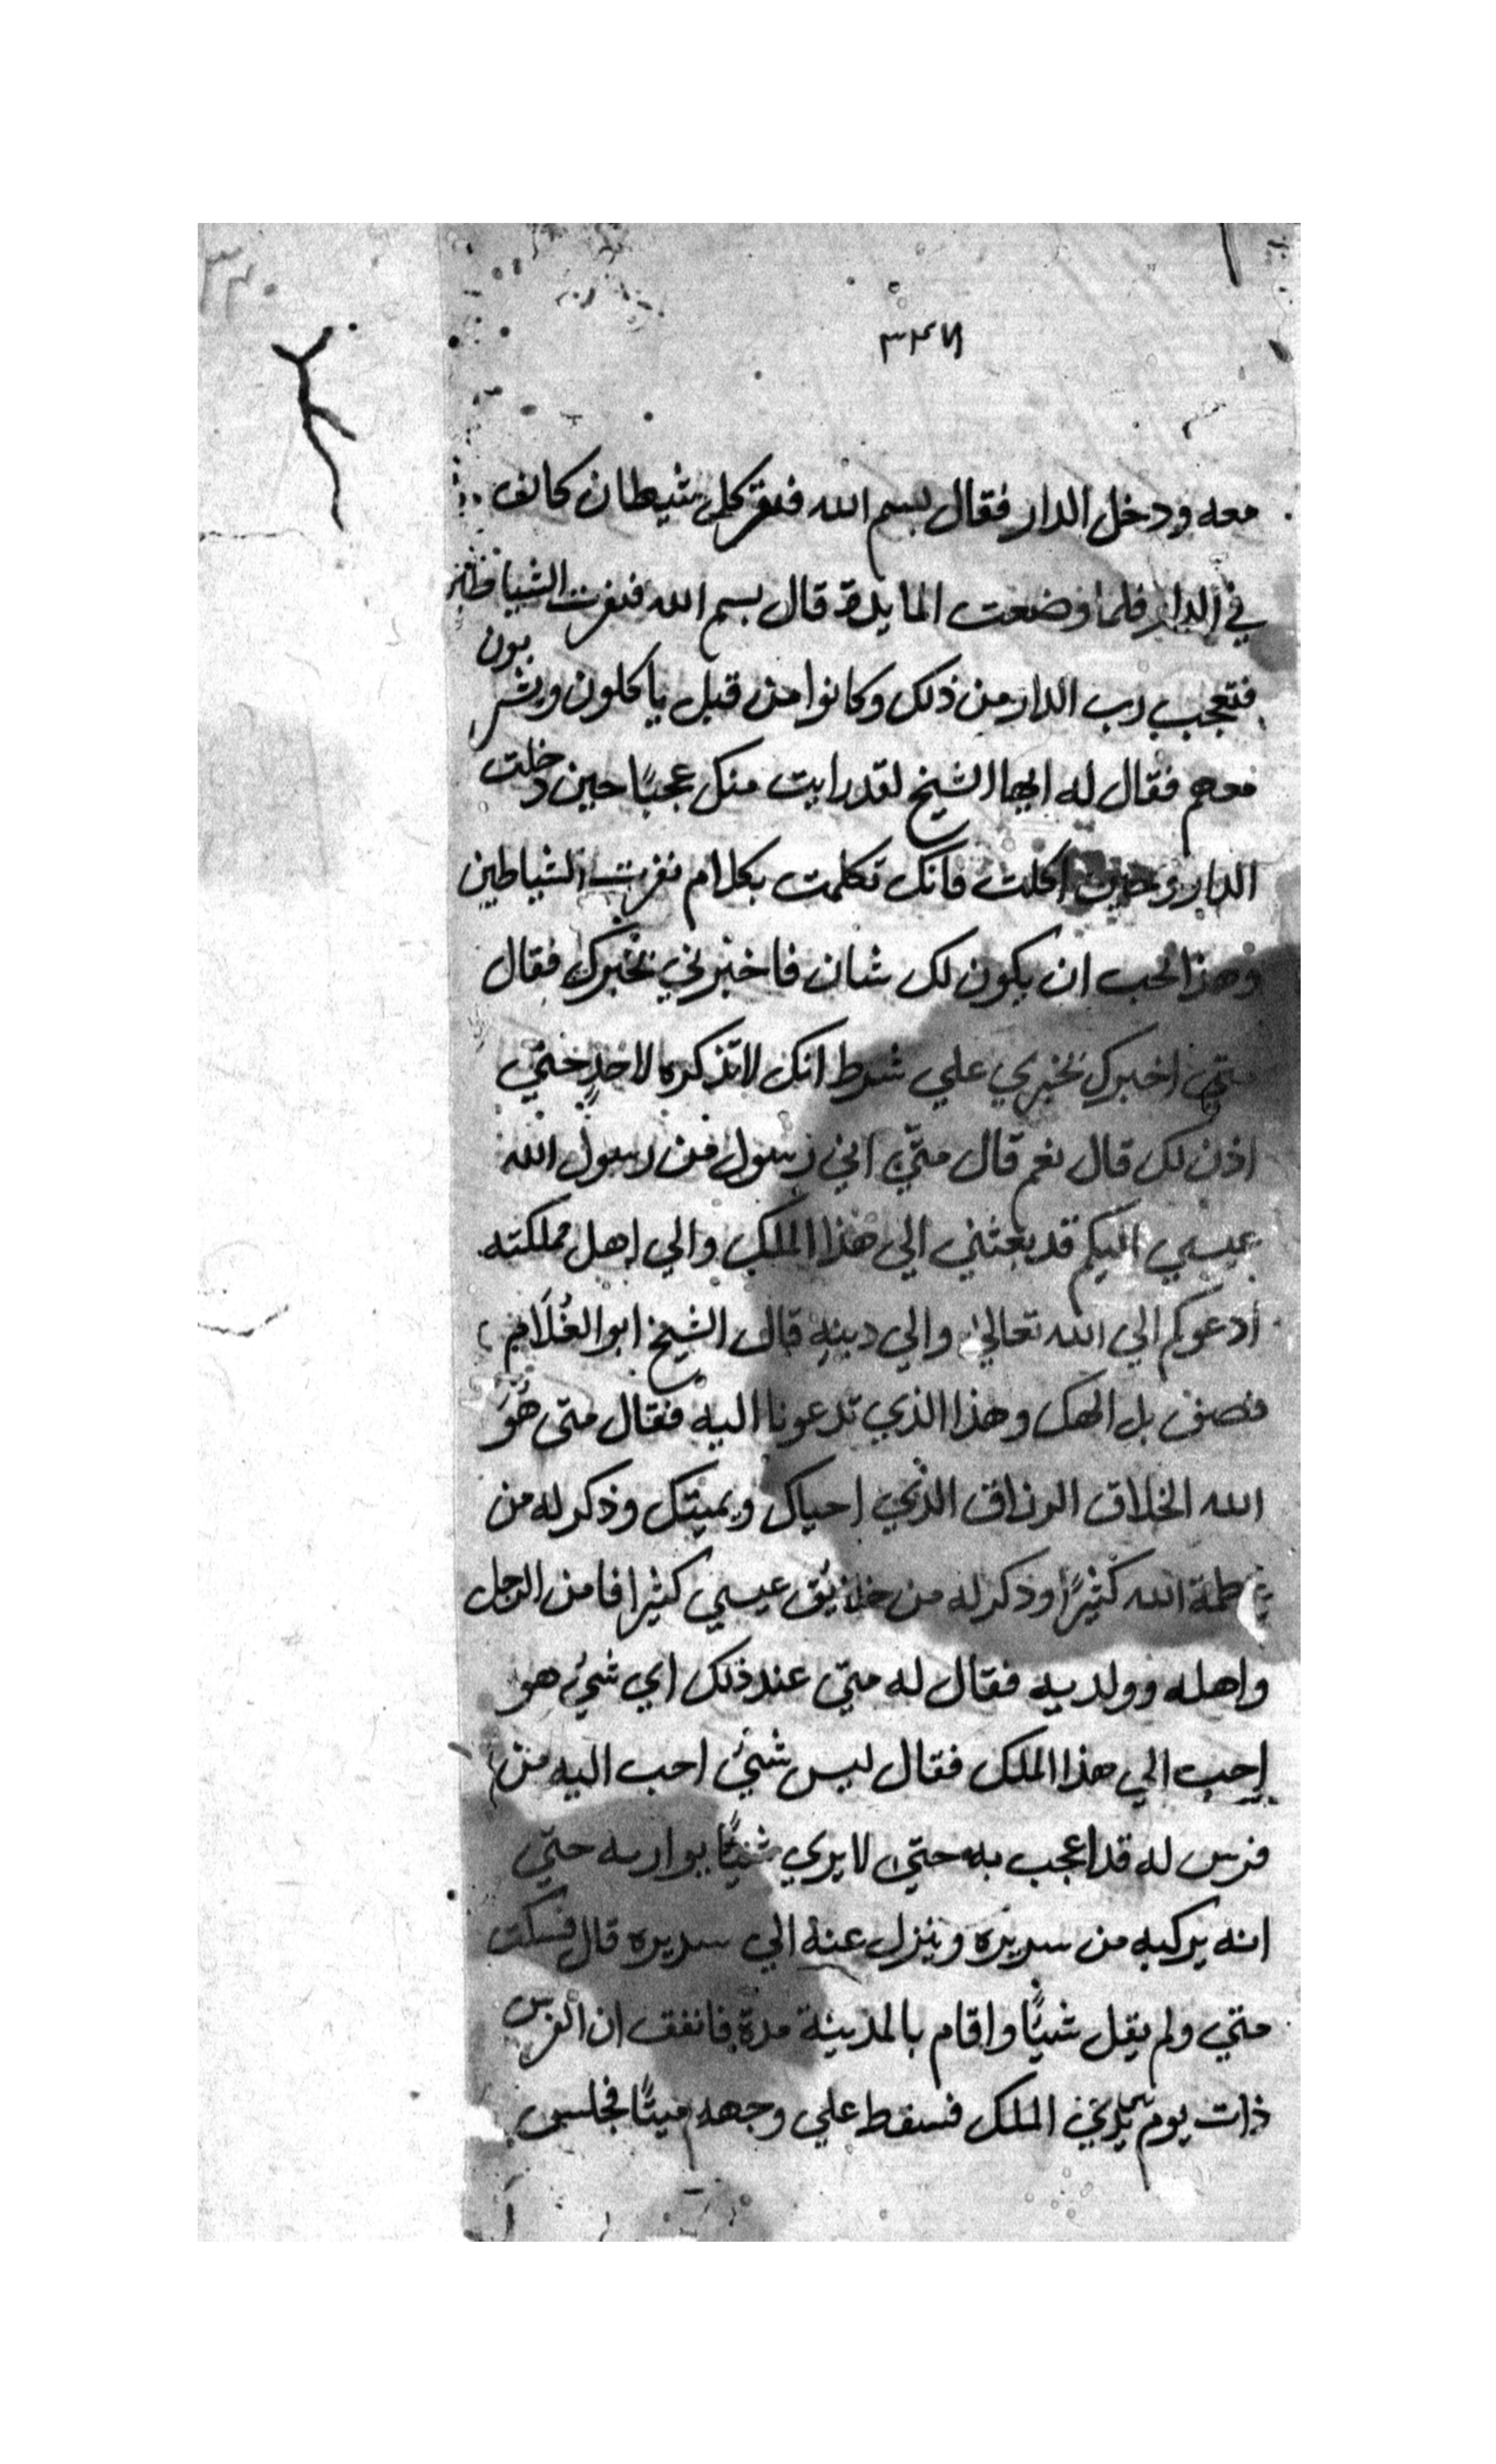 ٣٢٧
معه ودخل الدار فقال بسم الله فنفر كل شيطان كانف
في الدار فلما وضعت المايدة قال بسم الله فنفرت الشياطين
فتعجب رب الدار من ذلك وكانوا من قبل ياكلون ويشربون
معهم فقال له ايها الشيخ لقد رايت منك عجبًا حين دخلت
الدار وحين اكلت فانك تكلمت بكلام نفرت الشياطين
وهذا لحب ان يكون لك شان فاخبرني بخبرك فقال
متى اخبرك بخبري علي شرط انك لا تذكره لاحدٍ حتي
اذن لك قال نعم قال متّي اني رسول من رسول الله
عيسي اليكم قد بعثني الي هذا الملك والي اهل مملكته
ادعوكم الي الله تعالي والي دينه قال الشيخ ابو الغُلَام
فصف بل الهك وهذا الذي تدعونا اليه فقال متى هُوَ
الله الخلاق الرزاق الذي احياك ويميتك وذكر له من
عظمة الله كثيرًا وذكر له من خلايق عيسي كثيرا فامن الرجل
واهله وولديه فقال له متي عند ذلك اي شيء هو
احب الي هذا الملك فقال ليس شيء احب اليه من
فرس له قد اعجب به حتي لا يري شيئًا يوازيه حتي
انه يركبه من سريره وينزل عنه الي سريره قال فسكت
متي ولم يقل شيئًا واقام بالمدينة مدة فاتفق ان الفرس
ذات يوم الملك فسقط علي وجهه ميتًا فجلس